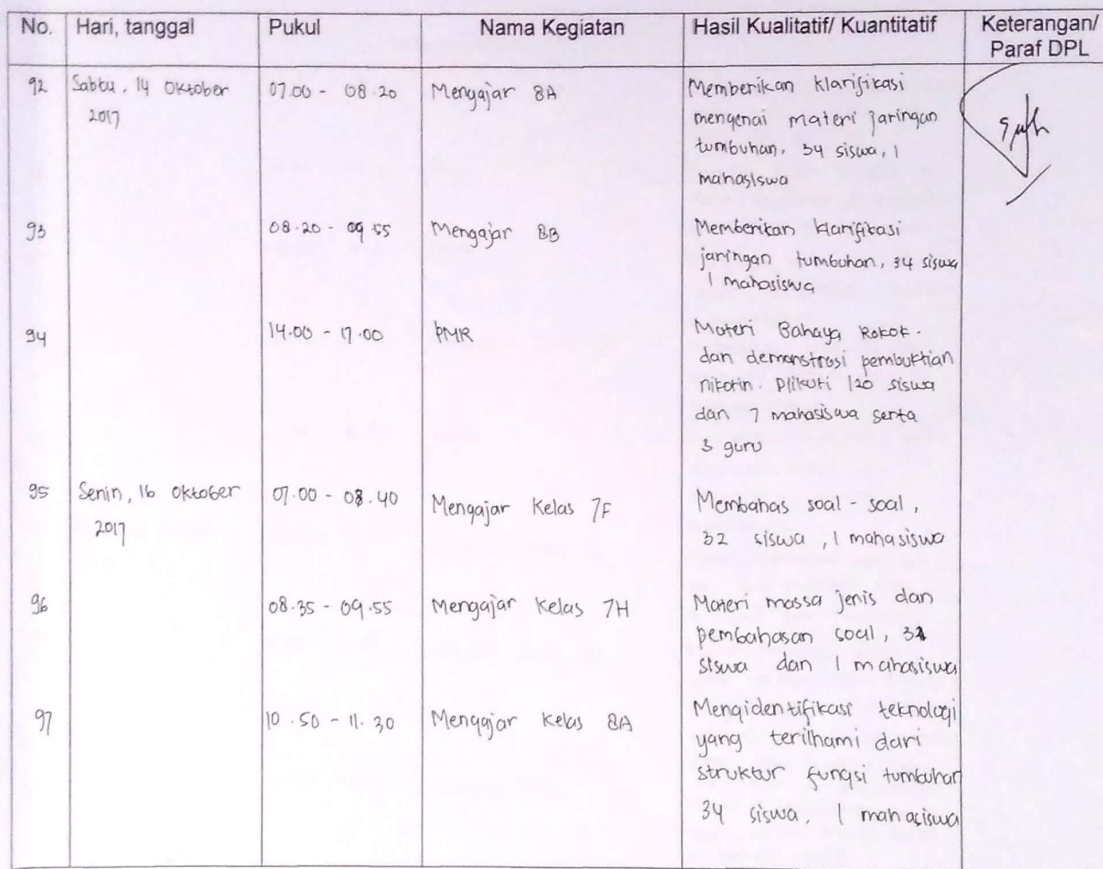 No. Hari, tanggal Pukul Nama Kegiatan Hasil Kualitatif/ Kuantitatif Keterangan/
Paraf DPL
92 Sabtu, 14 Oktober 07.00 - 08.20 Mengajar 8A Memberikan klarifikasi
2017 mengenai materi jaringan
tumbuhan, 34 siswa, 1
mahasiswa
93 08.20 - 09.55 Mengajar 8B Memberikan klarifikasi
jaringan tumbuhan, 34 siswa
1 mahasiswa
94 14.00 - 17.00 PMR Materi Bahaya Rokok.
dan demonstrasi pembuktian
nikotin. Diikuti 120 siswa
dan 7 mahasiswa serta
3 guru
95 Senin, 16 Oktober 07.00 - 08.40 Mengajar Kelas 7F Membahas soal - soal,
2017 32 siswa, 1 mahasiswa
96 08.35 - 09.55 Mengajar Kelas 7H Materi massa jenis dan
pembahasan soal,
siswa dan 1 mahasiswa
97 10.50 - 11.30 Mengajar Kelas 8A Mengidentifikasi teknologi
yang terilhami dari
struktur fungsi tumbuhan
34 siswa, 1 mahasiswa